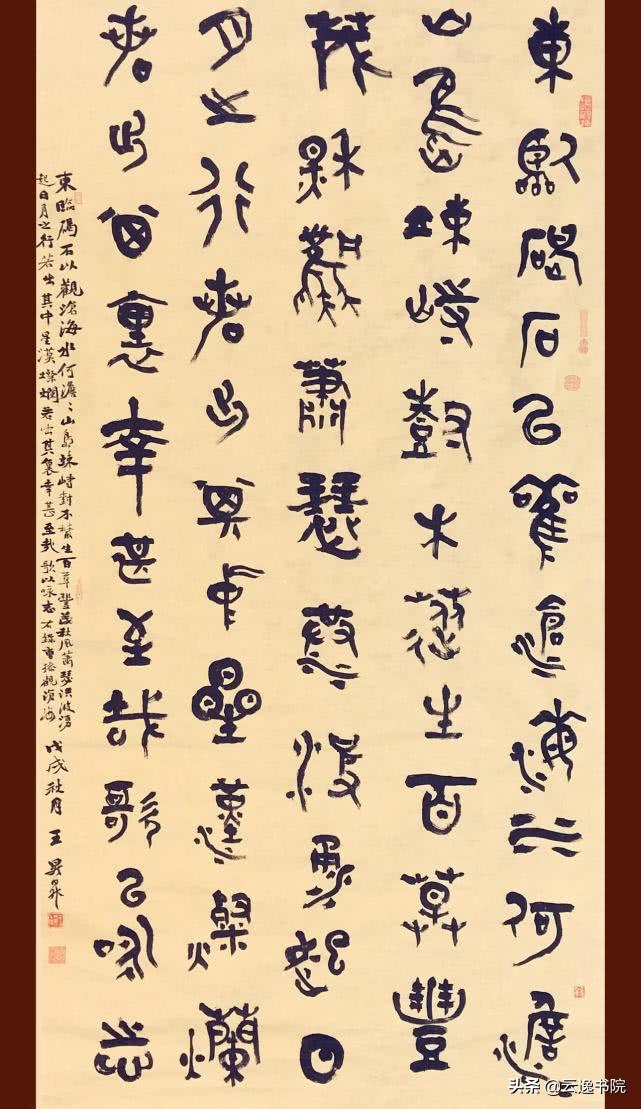 東臨碣石以觀滄海水何澹
山島竦峙樹木叢生百草豐
茂秋風蕭瑟洪波湧起日
月之行若出其中星漢燦爛
若出其裏幸甚至哉歌以咏志
東臨碣石以觀滄海水何澹〻山島竦峙封木叢生百草豐茂秋風蕭瑟洪波湧
起日月之行若出其中星漢燦爛若出其裏幸甚至哉歌以咏志右錄曹操觀滄海
戊戌秋月王
头条 @云逸书院